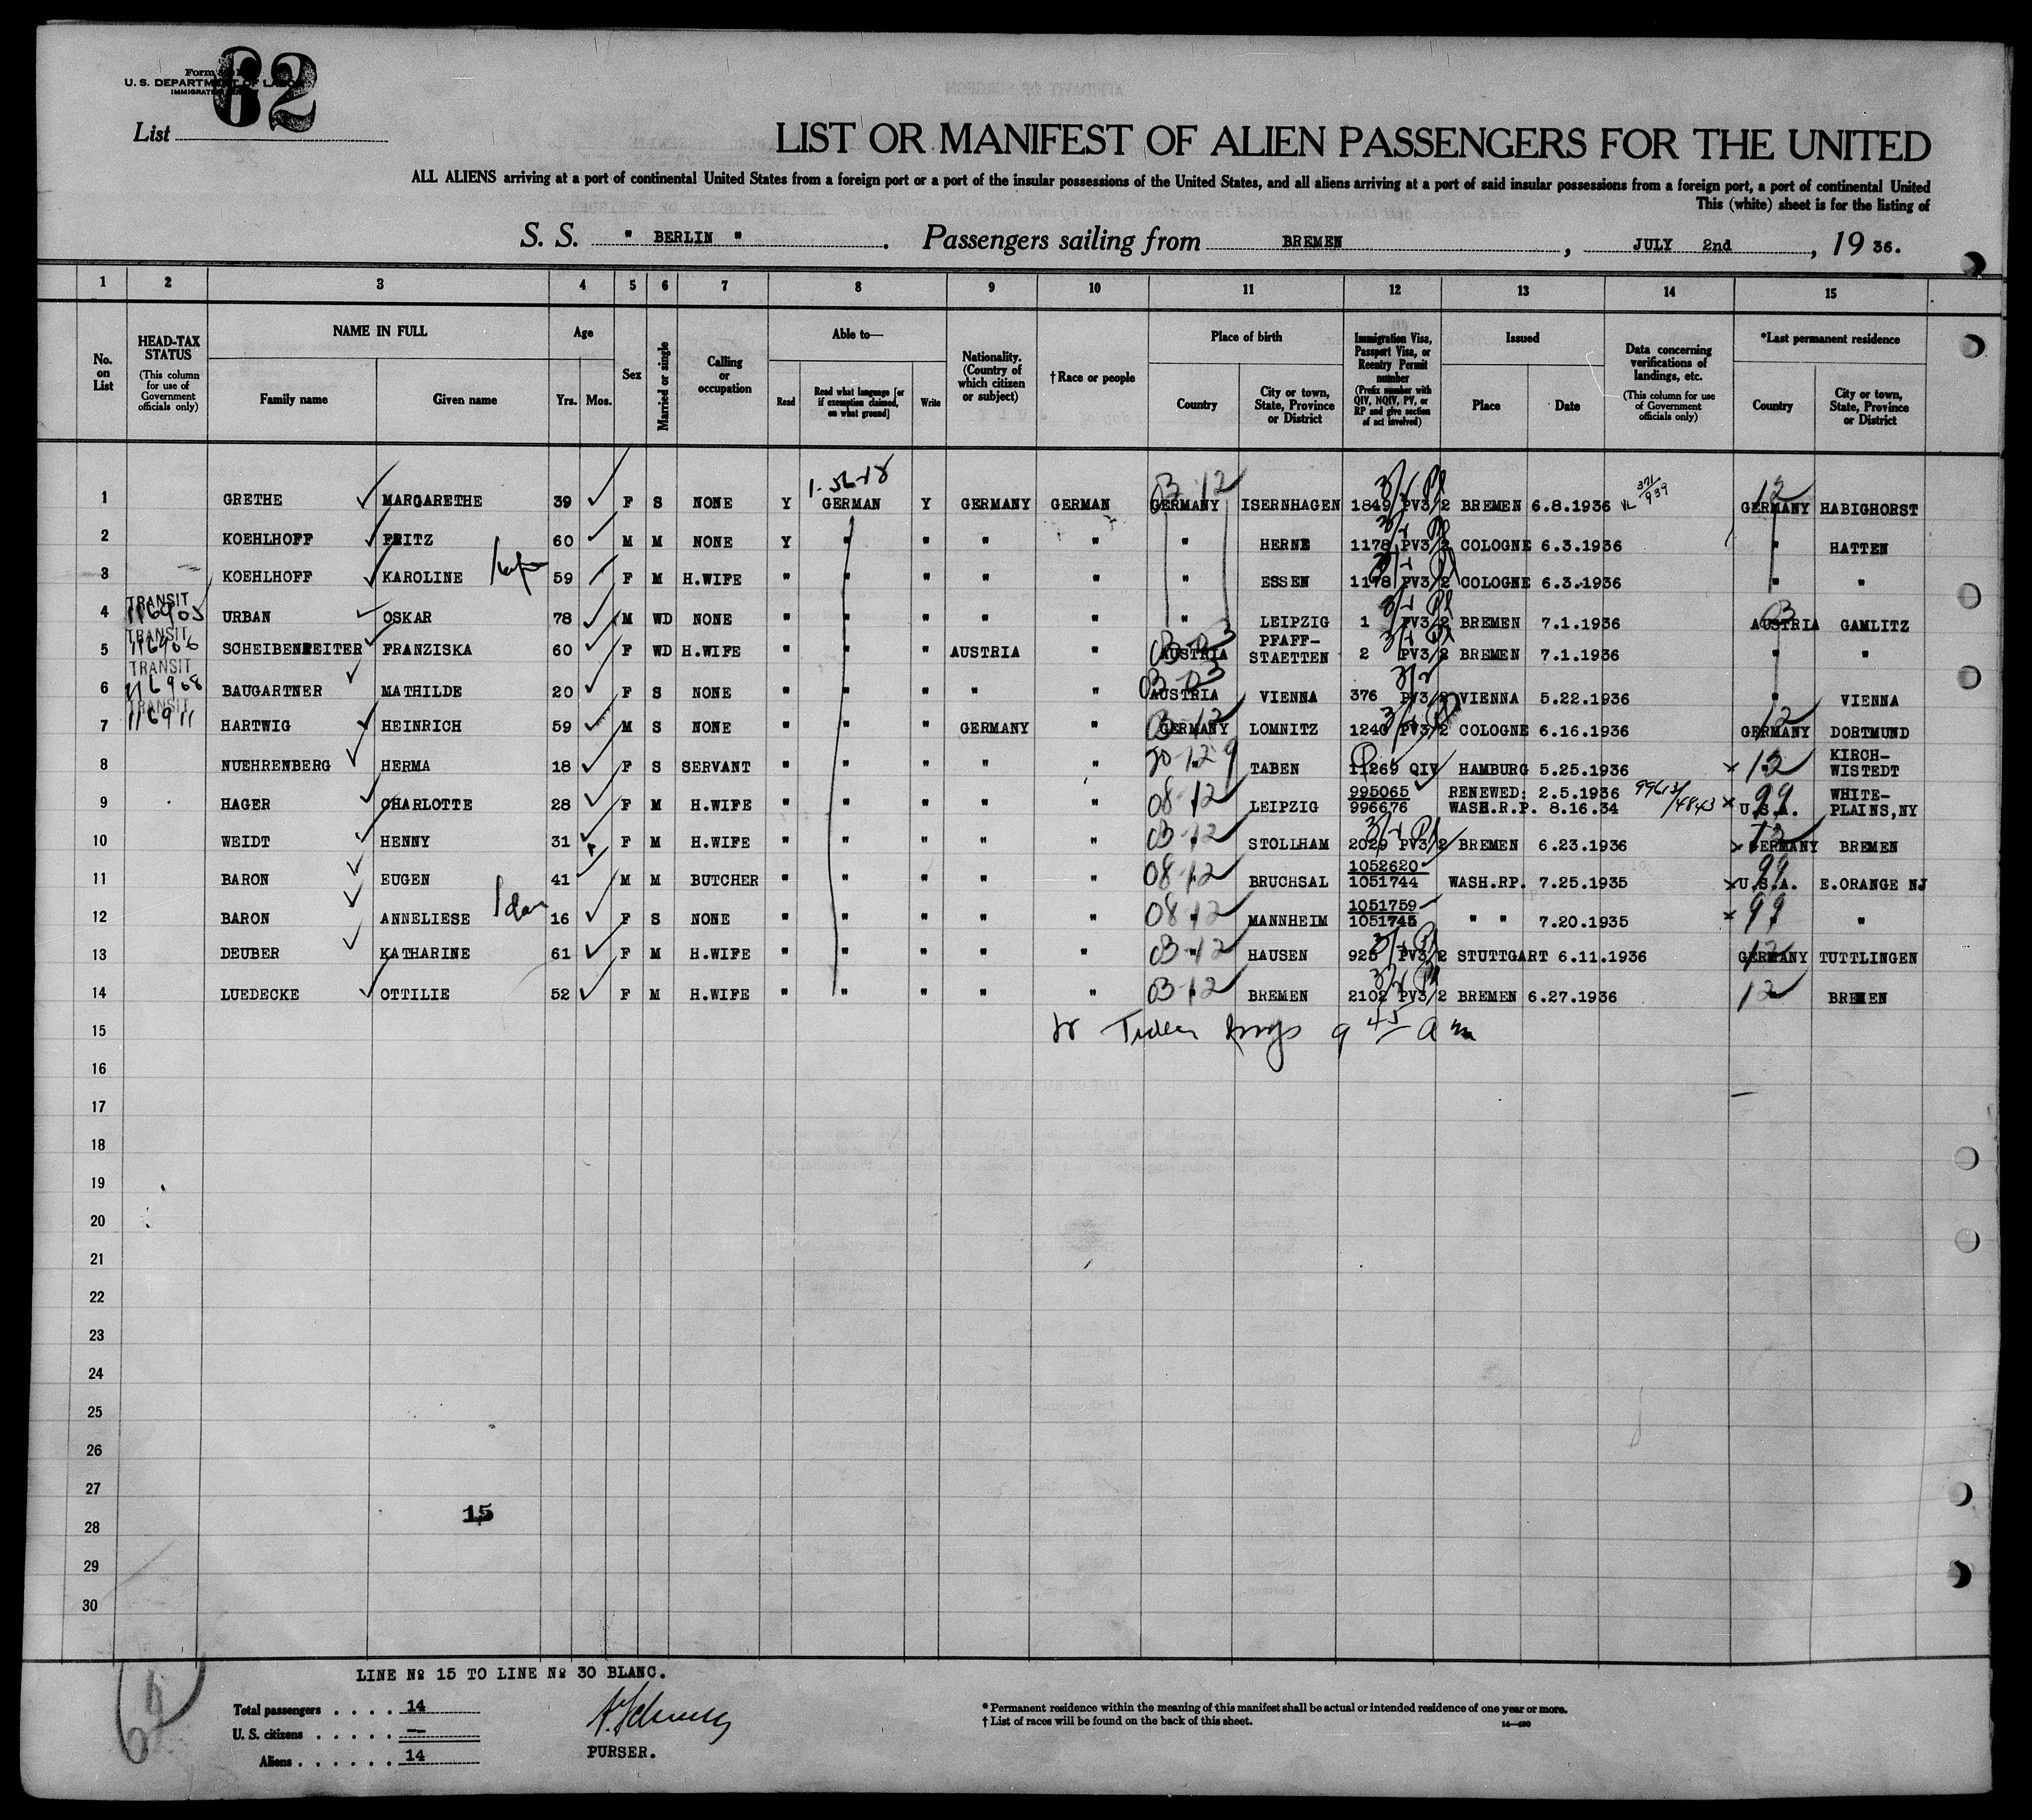 Form
U. S. DEPARTMENT OF LABOR
IMMIGRATION
62
List
LIST OR MANIFEST OF ALIEN PASSENGERS FOR THE UNITED
ALL ALIENS arriving at a port of continental United States from a foreign port or a port of the insular possessions of the United States, and all aliens arriving at a port of said insular possessions from a foreign port, a port of continental United
This (white) sheet is for the listing of
S. S. " BERLIN " . Passengers sailing from BREMEN , JULY 2nd , 19 36.
1 2 3 4 5 6 7 8 9 10 11 12 13 14 15
No. on List
HEAD-TAX STATUS (This column for use of Government officials only)
NAME IN FULL
Family name Given name
Age
Yrs. Mos.
Sex
Married or single
Calling or occupation
Able to—
Read Read what language [or if exemption claimed, on what ground] Write
Nationality. (Country of which citizen or subject)
† Race or people
Place of birth
Country City or town, State, Province or District
Immigration Visa, Passport Visa, or Reentry Permit number (Prefix number with QIV, NQIV, PV, or RP and give section of act involved)
Issued
Place Date
Data concerning verifications of landings, etc. (This column for use of Government officials only)
*Last permanent residence
Country City or town, State, Province or District
1 GRETHE MARGARETHE 39 F S NONE Y GERMAN Y GERMANY GERMAN 03-12 GERMANY ISERNHAGEN 1849 PV3/2 BREMEN 6.8.1936 371/939 12 GERMANY HABIGHORST
2 KOEHLHOFF FRITZ 60 M M NONE Y " " " " " HERNE 1178 PV3/2 COLOGNE 6.3.1936 " HATTEN
3 KOEHLHOFF KAROLINE 59 F M H.WIFE " " " " " " ESSEN 1178 PV3/2 COLOGNE 6.3.1936 " "
4 TRANSIT 116905 URBAN OSKAR 78 M WD NONE " " " " " " LEIPZIG 1 PV3/2 BREMEN 7.1.1936 03 AUSTRIA GAMLITZ
5 TRANSIT 116906 SCHEIBENREITER FRANZISKA 60 F WD H.WIFE " " " AUSTRIA " 03-03 AUSTRIA PFAFF-STAETTEN 2 PV3/2 BREMEN 7.1.1936 " "
6 TRANSIT 116908 BAUGARTNER MATHILDE 20 F S NONE " " " " " 03-03 AUSTRIA VIENNA 376 PV3/2 VIENNA 5.22.1936 " VIENNA
7 TRANSIT 116911 HARTWIG HEINRICH 59 M S NONE " " " GERMANY " 03-12 GERMANY LOMNITZ 1240 PV3/2 COLOGNE 6.16.1936 12 GERMANY DORTMUND
8 NUEHRENBERG HERMA 18 F S SERVANT " " " " " " TABEN 11269 QIV HAMBURG 5.25.1936 x 12 " KIRCH-WISTEDT
9 HAGER CHARLOTTE 28 F M H.WIFE " " " " " 08-12 " LEIPZIG 995065 996676 RENEWED: 2.5.1936 WASH.R.P. 8.16.34 x 99 U.S.A. WHITE-PLAINS,NY
10 WEIDT HENNY 31 F M H.WIFE " " " " " 03-12 " STOLLHAM 2029 PV3/2 BREMEN 6.23.1936 x 12 GERMANY BREMEN
11 BARON EUGEN 41 M M BUTCHER " " " " " 08-12 " BRUCHSAL 1052620 1051744 WASH.RP. 7.25.1935 x 99 U.S.A. E.ORANGE NJ
12 BARON ANNELIESE 16 F S NONE " " " " " 08-12 " MANNHEIM 1051759 1051745 " " 7.20.1935 x 99 " "
13 DEUBER KATHARINE 61 F M H.WIFE " " " " " 03-12 " HAUSEN 925 PV3/2 STUTTGART 6.11.1936 12 GERMANY TUTTLINGEN
14 LUEDECKE OTTILIE 52 F M H.WIFE " " " " " 03-12 " BREMEN 2102 PV3/2 BREMEN 6.27.1936 12 BREMEN
15
16
17
18
19
20
21
22
23
24
25
26
27
15
28
29
30
LINE No 15 TO LINE No 30 BLANC.
Total passengers . . . . 14
U. S. citizens . . . . . —
Aliens . . . . . . 14
PURSER.
* Permanent residence within the meaning of this manifest shall be actual or intended residence of one year or more.
† List of races will be found on the back of this sheet.
14—430